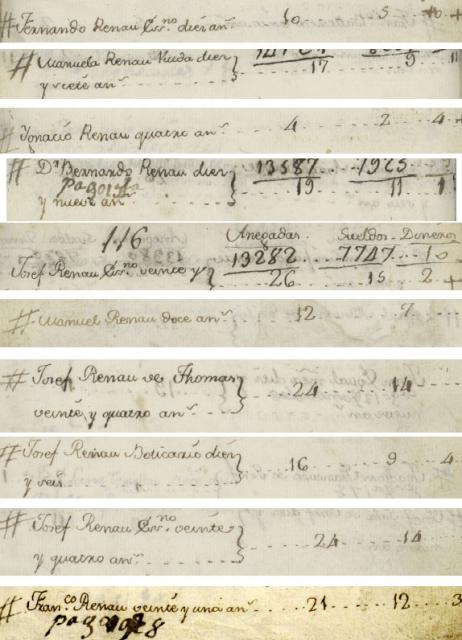 # Fernando Renau Civ.no diez an.s 10 5 10 +
# Manuela Renau Viuda diez
y siete an.s 17 9 11
# Ygnacio Renau quatro an.s 4 2 4
# D.n Bernardo Renau diez 13587 1965
y nueve an.s 19 11 1
116 Anegadas. Sueldos Dineros
13282 7747 10
Josef Renau Civ.no veinte y 26 15 2 +
# Manuel Renau doce an.s 12 7
# Josef Renau de Thomas 24 14
veinte y quatro an.s
# Josef Renau Boticario diez 16 9 4
y seis
# Josef Renau Civ.no veinte
y quatro an.s 24 14
# Fran.co Renau veinte y una an.s 21 12 3